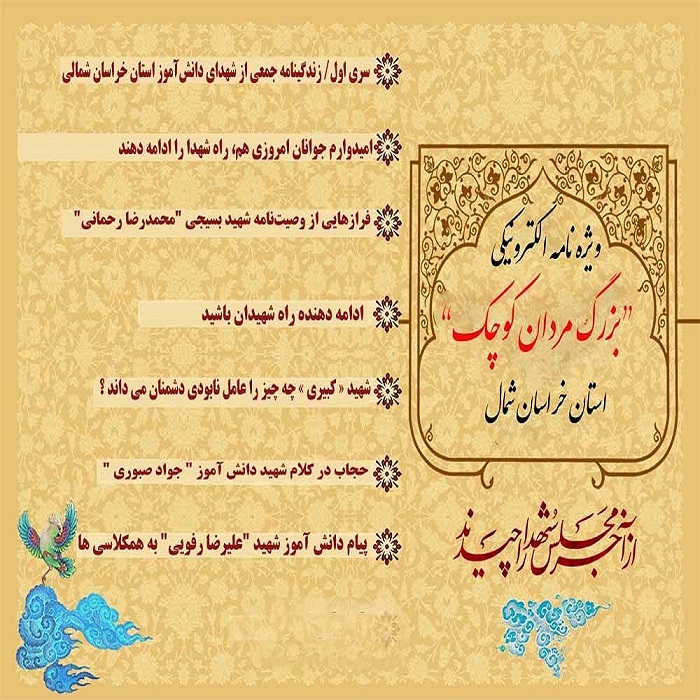 ویژه نامه الکترونیکی
"بزرگ مردان کوچک"
استان خراسان شمال
از آن جرس مجلس شهدا را چیدند
سری اول/ زندگینامه جمعی از شهدای دانش‌آموز استان خراسان شمالی
امیدوارم جوانان امروزی هم، راه شهدا را ادامه دهند
فرازهایی از وصیت‌نامه شهید بسیجی "محمدرضا رحمانی"
ادامه دهنده راه شهیدان باشید
شهید « کبیری » چه چیز را عامل نابودی دشمنان می داند ؟
حجاب در کلام شهید دانش آموز " جواد صبوری "
پیام دانش آموز شهید "علیرضا رفویی" به همکلاسی ها